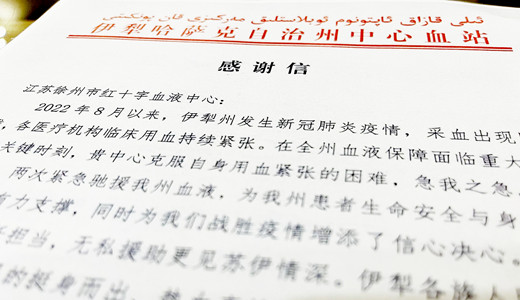 ئىلى قازاق ئاپتونوم ئوبلاستلىق مەركىزىي قان پونكىتى
伊犁哈萨克自治州中心血站
感谢信
江苏徐州市红十字血液中心：
2022年8月以来，伊犁州发生新冠肺炎疫情，采血出现
，各医疗机构临床用血持续紧张。在全州血液保障面临重大
关键时刻，贵中心克服自身用血紧张的困难，急我之急
两次紧急驰援我州血液，为我州患者生命安全与身
有力支撑，同时为我们战胜疫情增添了信心决心。
担当，无私援助更见苏伊情深。伊犁各族人
的挺身而出